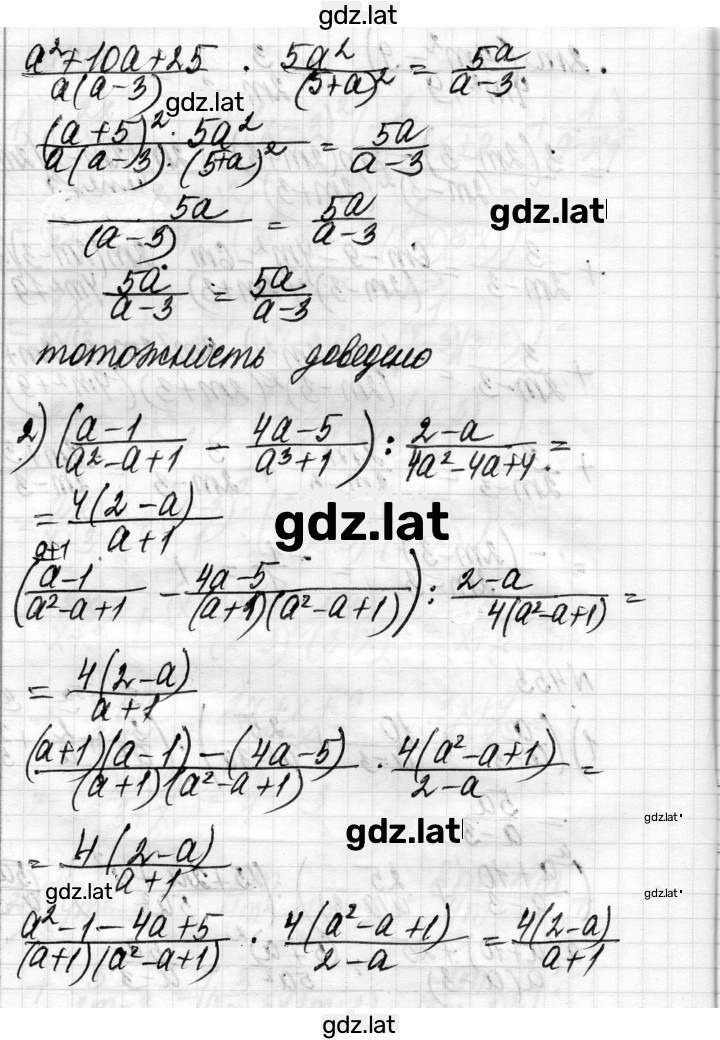 gdz.lat
a²+10a+25 / a(a-3) · 5a² / (5+a)² = 5a / a-3.
gdz.lat
(a+5)²·5a² / a(a-3)·(5+a)² = 5a / a-3
5a / (a-3) = 5a / a-3.
gdz.lat
5a / a-3 = 5a / a-3
тотожність доведено
2) (a-1 / a²-a+1 - 4a-5 / a³+1) : 2-a / 4a²-4a+4 =
= 4(2-a) / a+1
gdz.lat
a+1
(a-1 / a²-a+1 - 4a-5 / (a+1)(a²-a+1)) : 2-a / 4(a²-a+1) =
= 4(2-a) / a+1
(a+1)(a-1)-(4a-5) / (a+1)(a²-a+1) · 4(a²-a+1) / 2-a =
gdz.lat
gdz.lat
= 4(2-a) / a+1
gdz.lat
gdz.lat
a²-1-4a+5 / (a+1)(a²-a+1) · 4(a²-a+1) / 2-a = 4(2-a) / a+1
gdz.lat